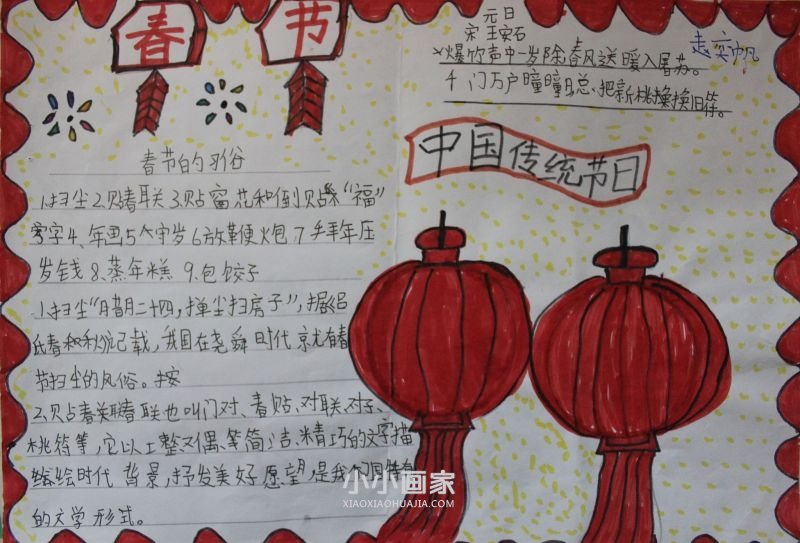 春节
元日
宋 王安石
爆竹声中一岁除,春风送暖入屠苏。
千门万户曈曈日,总把新桃换旧符。
赵奕帆
中国传统节日
春节的习俗
1.扫尘2.贴春联3.贴窗花和倒贴"福"
字4、年画5、守岁6放鞭炮7.拜年压
岁钱8.蒸年糕 9.包饺子
1.扫尘"腊月二十四,掸尘扫房子",据吕
氏春秋记载,我国在尧舜时代就有春
节扫尘的风俗。按
2.贴春联春联也叫门对、春贴、对联、对子、
桃符等,它以工整、对偶、简洁、精巧的文字描
绘时代背景,抒发美好愿望,是我国特有
的文学形式。
小小画家
XIAOXIAOHUAJIA.COM